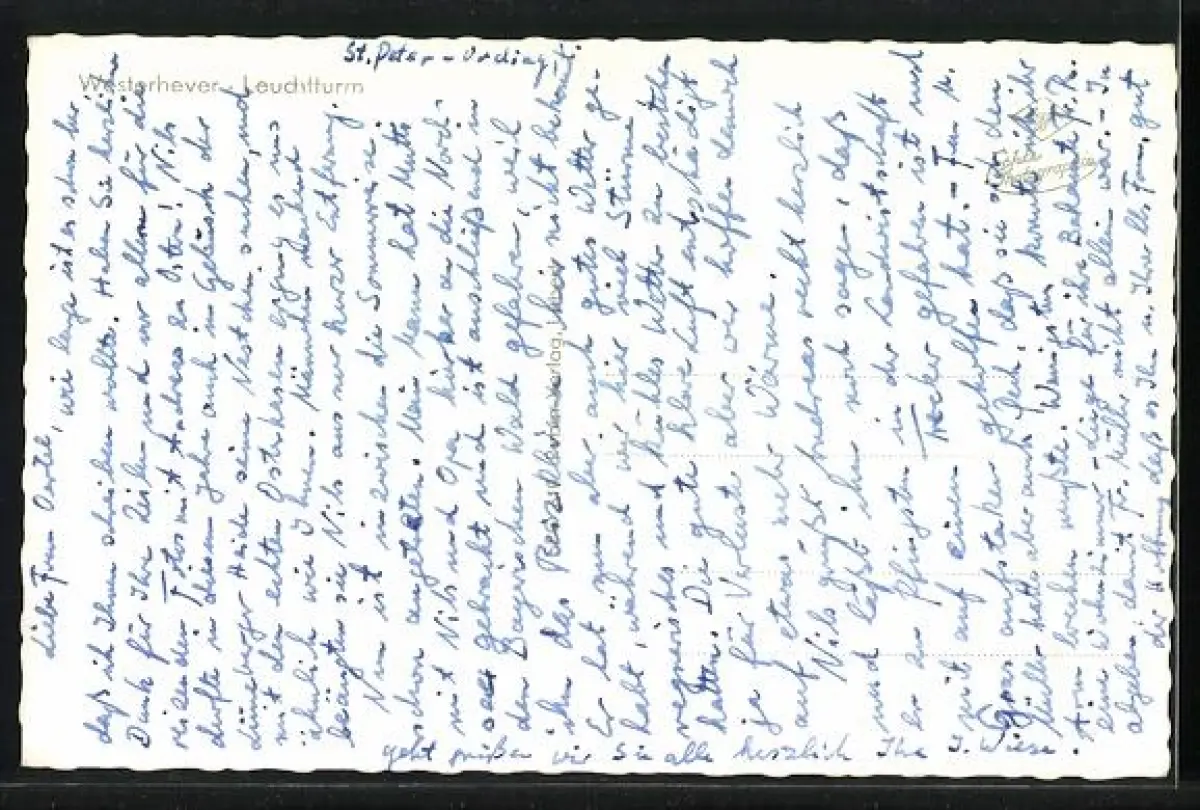 St. Peter-Ording,
Westerhever - Leuchtturm
Liebe Frau Oertel, wie lange ist es schon her
daß ich Ihnen schreiben wollte. Haben Sie herzlichen
Dank für Ihre Zeilen und vor allem für die
Fotos mit Andreas zu Ostern! Nils
durfte in diesem Jahre auch im Gebüsch der
Lüneburger Heide seine Nestchen suchen, und
mit den echten Ostereiern erging es uns
ähnlich wie Ihnen. Männchen
beäugte sie Nils aus nur kurzer Entfernung
Nun ist inzwischen die Sommerreise
schon angetreten. Mein Mann hat Mutti
mit Nils und Opa hierher an die Nord-
see gebracht und ist anschließend in
den Bayrischen Wald gefahren, weil
ihm das Reizklima hier nicht bekommt.
Er hat nun aber auch gutes Wetter ge-
habt, während wir hier viel Stürme
regnerisches und kühles Wetter zu bestehen
hatten. Die gute klare Luft entschädigt
ja für Verluste, aber wir hoffen dennoch
auf etwas mehr Wärme.
Nils grüßt Andreas recht herzlich
und läßt ihm noch sagen, daß
er zu Pfingsten in der Landwirtschaft
mit auf einem Trecker gefahren ist und
Gras aufstaken geholfen hat. - Frau M.
Müller hatte aber auch Pech, daß sie sich den
Arm brechen mußte. Wenigstens konnte sie ihr
eine Wohnzimmerliege für ihr Bad
abgeben, damit Fr. Müller nicht allein war. - In
der Hoffnung, daß es Ihnen u. Ihrer lb. Fam. gut
geht grüßen wir Sie alle herzlich Ihre I. Wiese.